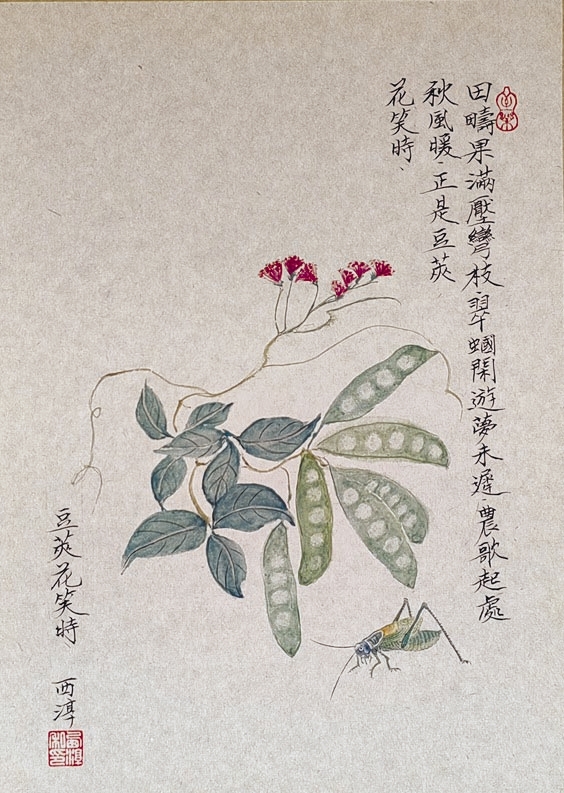 田疇果滿壓彎枝、翠蟈閑遊夢未遲、農歌起處
秋風暖、正是豆莢
花笑時、
豆莢花笑時 西淳